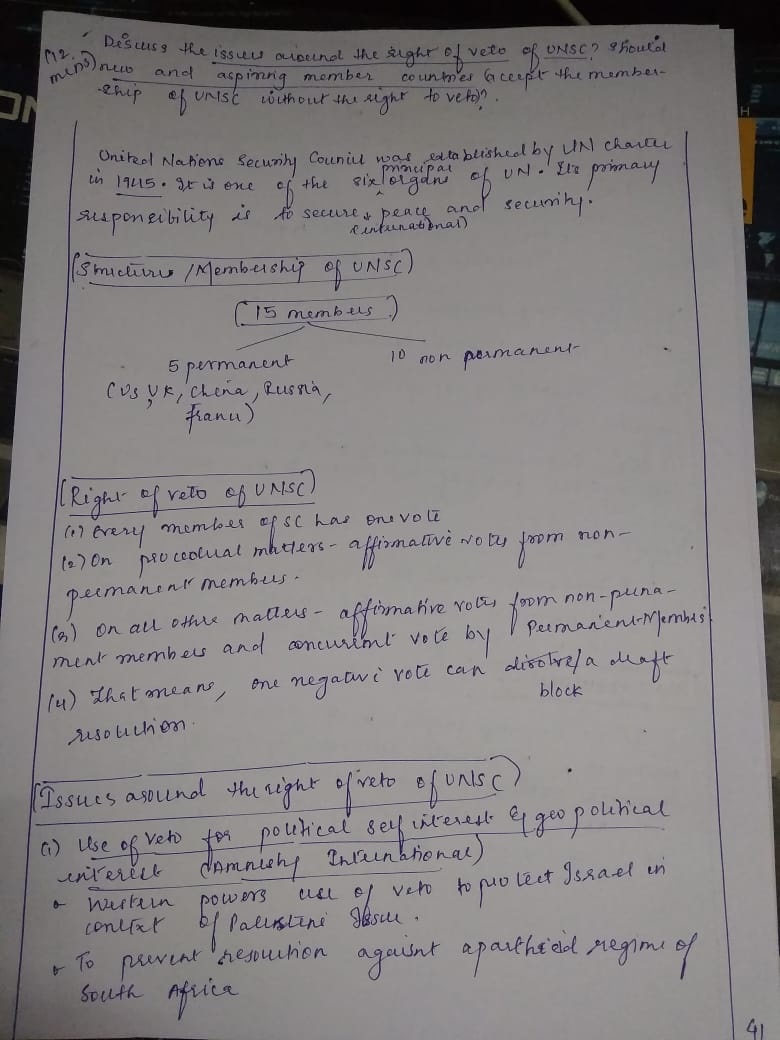 (12 mins) Discuss the issues around the right of veto of UNSC? Should
new and aspiring member countries accept the member-
-ship of UNSC without the right to veto?.
United Nations Security Council was established by UN charter
in 1945. It is one of the six principal organs of UN. Its primary
responsibility is to secure peace and security.
(international)
Structure /Membership of UNSC
15 members
5 permanent
10 non permanent
(US, UK, China, Russia,
France)
Right of veto of UNSC
(1) Every member of SC has one vote
(2) On procedural matters - affirmative votes from non-
permanent members.
(3) On all other matters - affirmative votes from non-perma-
ment members and concurrent vote by Permanent-Members
(4) That means, one negative vote can a draft
block
resolution.
Issues around the right of veto of UNSC
(1) Use of Veto for political self interest & geo political
interest (Amnesty International)
Western powers use of veto to protect Israel in
context of Palestine Issue.
To prevent resolution against apartheid regime of
South Africa
41
ON
H